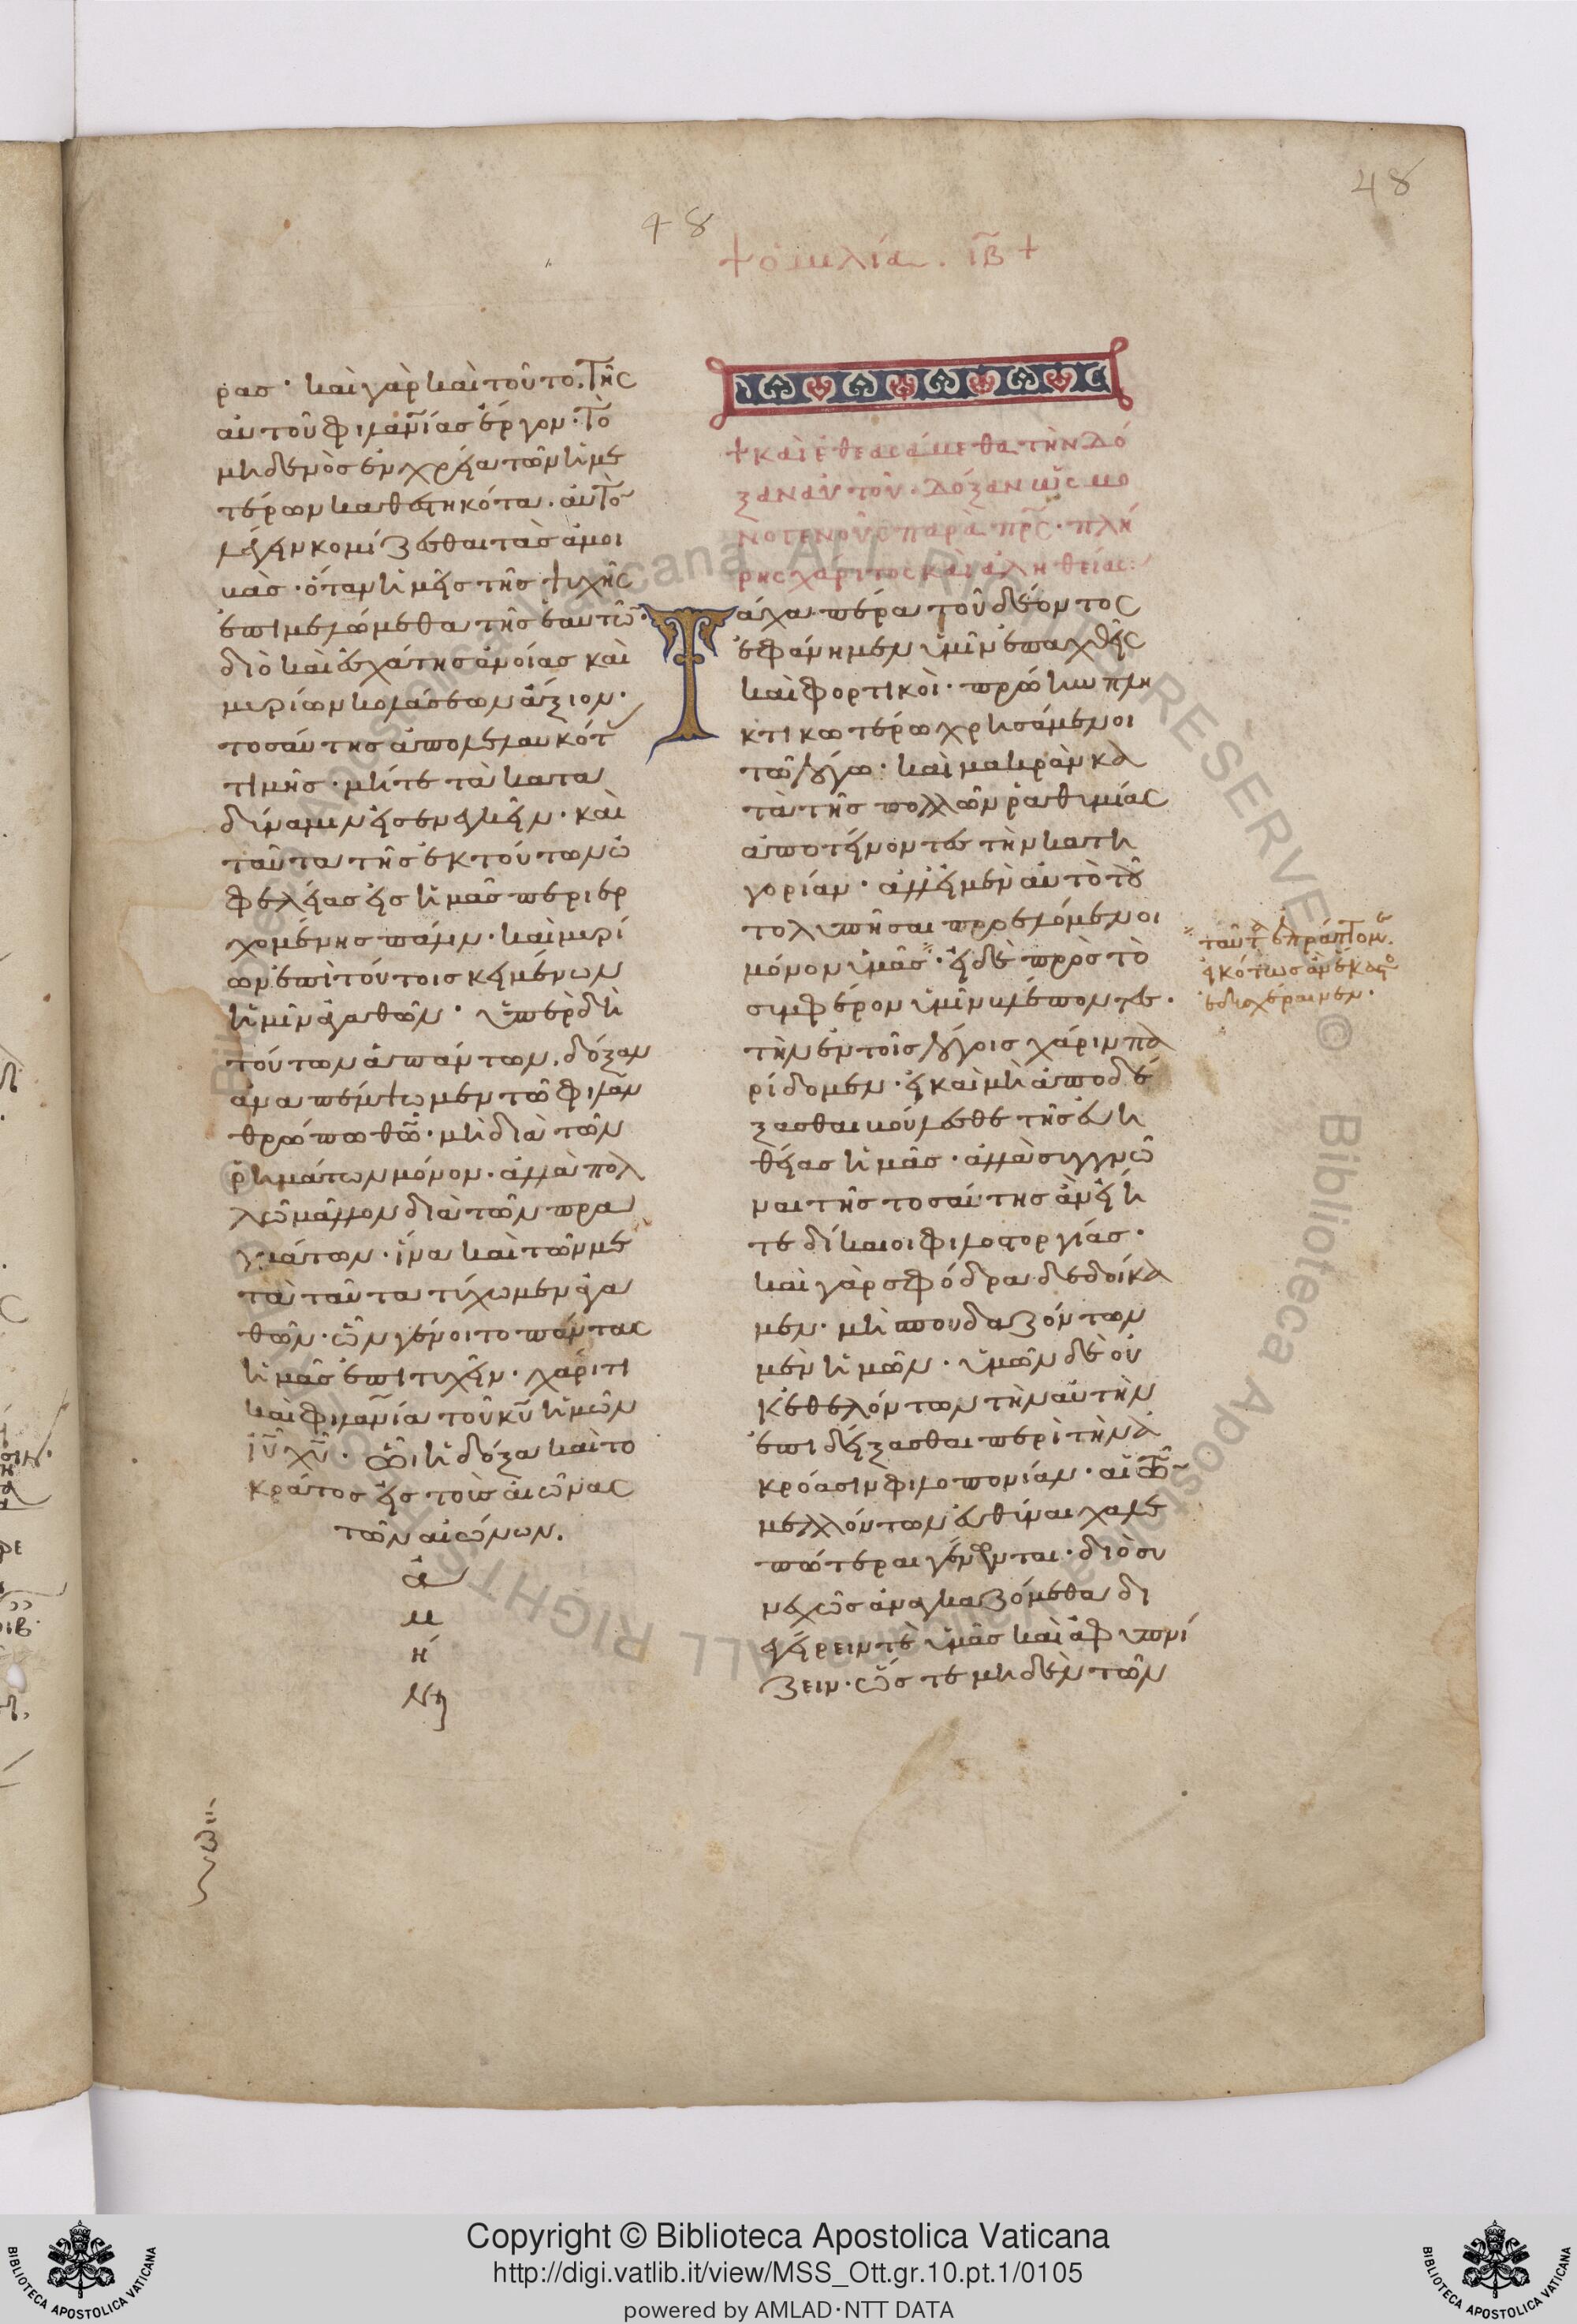 48
48
+ ὁμιλία. ιβ +
ρας· καὶ γὰρ καὶ τοῦτο, τῆς
αὐτοῦ φιλανίας ἔργον· τὸ
μηδενὸς ἐν χρεία τῶν ἡμε
τέρων καθεστηκότα. αὐτὸ
λέγειν κομίζεσθαι τὰς ἀμοι
βὰς· ὅταν ἡμεῖς τῆς ψυχῆς
ἐπιμελώμεθα τῆς ἑαυτῶ·
διὸ καὶ ἐσχάτης ἀνοίας καὶ
μυρίων κολάσεων ἄξιον·
τοσαύτης ἀπολελαυκότ
τιμῆς· μήτε τὰ κατα
δύναμιν εἰσενεγκεῖν· καὶ
ταῦτα τῆς ἐκ τούτων ὠ
φελείας εἰς ἡμᾶς περιερ
χομένης πάλιν· καὶ μυρί
ων ἐπὶ τούτοις κειμένων
ἡμῖν ἀγαθῶν· ὑπὲρ δὴ
τούτων ἁπάντων, δόξαν
ἀναπέμψωμεν τῶ φιλαν
θρώπω θῶ· μὴ διὰ τῶν
ῥημάτων μόνον· ἀλλὰ πολ
λῶ μᾶλλον διὰ τῶν πρα
γμάτων· ἵνα καὶ τῶν με
τὰ ταῦτα τύχωμεν ἀγα
θῶν· ὧν γένοιτο πάντας
ἡμᾶς ἐπιτυχεῖν· χάριτι
καὶ φιλανία τοῦ κυ ἡμῶν
ιυ χυ· ὧι ἡ δόξα καὶ το
κράτος εἰς τοὺς αἰῶνας
τῶν αἰώνων.
ἀ
μ
ή
ν
+ καὶ ἐθεασάμεθα τὴν δό
ξαν αὐτοῦ· δόξαν ὡς μο
νογενοῦς παρὰ πρς· πλή
ρης χάριτος καὶ ἀληθείας:
Τάχα πέρα τοῦ δέοντος
ἐφάνημεν ὑμῖν ἐπαχθεῖς
καὶ φορτικοὶ· πρώην πλη
κτικωτέρω χρησάμενοι
τῶ λόγω· καὶ μακρὰν κα
τὰ τῆς πολλῶν ῥαθυμίας
ἀποτείνοντες τὴν κατη
γορίαν· ἀλλ' εἰ μὲν αὐτὸ τοῦ
το λυπῆσαι προελόμενοι
μόνον ὑμᾶς· εἰ δὲ πρὸς τὸ
συμφέρον ὑμῖν βλέποντες·
τὴν ἐν τοῖς λόγοις χάριν πα
ρίδομεν· εἰ καὶ μὴ ἀποδέ
ξασθαι βούλεσθε τῆς εὐη
θείας ἡμᾶς· ἀλλὰ συγγνῶ
ναι τῆς τοσαύτης ἂν εἴη
τε δίκαιοι φιλοστοργίας·
καὶ γὰρ σφόδρα δεδοίκα
μεν· μὴ σπουδαζόντων
μὲν ἡμῶν· ὑμῶν δὲ οὐ
κ ἐθελόντων τὴν αὐτὴν
ἐπιδείξασθαι περὶ τὴν ἀ
κρόασιν φιλοπονίαν· αἱ
μελλόντων εὐθῦναι χαλε
πώτεραι γένωνται· διὸ συ
νεχῶς ἀναγκαζόμεθα δι
εγείρειν τὲ ὑμᾶς καὶ ἀφυπνί
ζειν· ὥστε μηδὲν τῶν
ταῦτα ἐπράττομεν.
εἰκότως ἂν ἕκαστος
ἐδυσχέραινεν·
Copyright © Biblioteca Apostolica Vaticana
http://digi.vatlib.it/view/MSS_Ott.gr.10.pt.1/0105
powered by AMLAD·NTT DATA
BIBLIOTECA APOSTOLICA VATICANA
BIBLIOTECA APOSTOLICA VATICANA